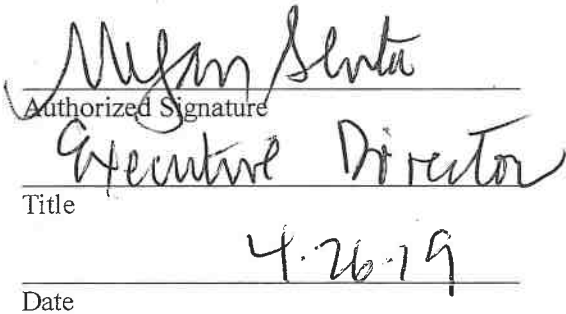 Megan
Authorized Signature
Executive Director
Title
4.26.19
Date